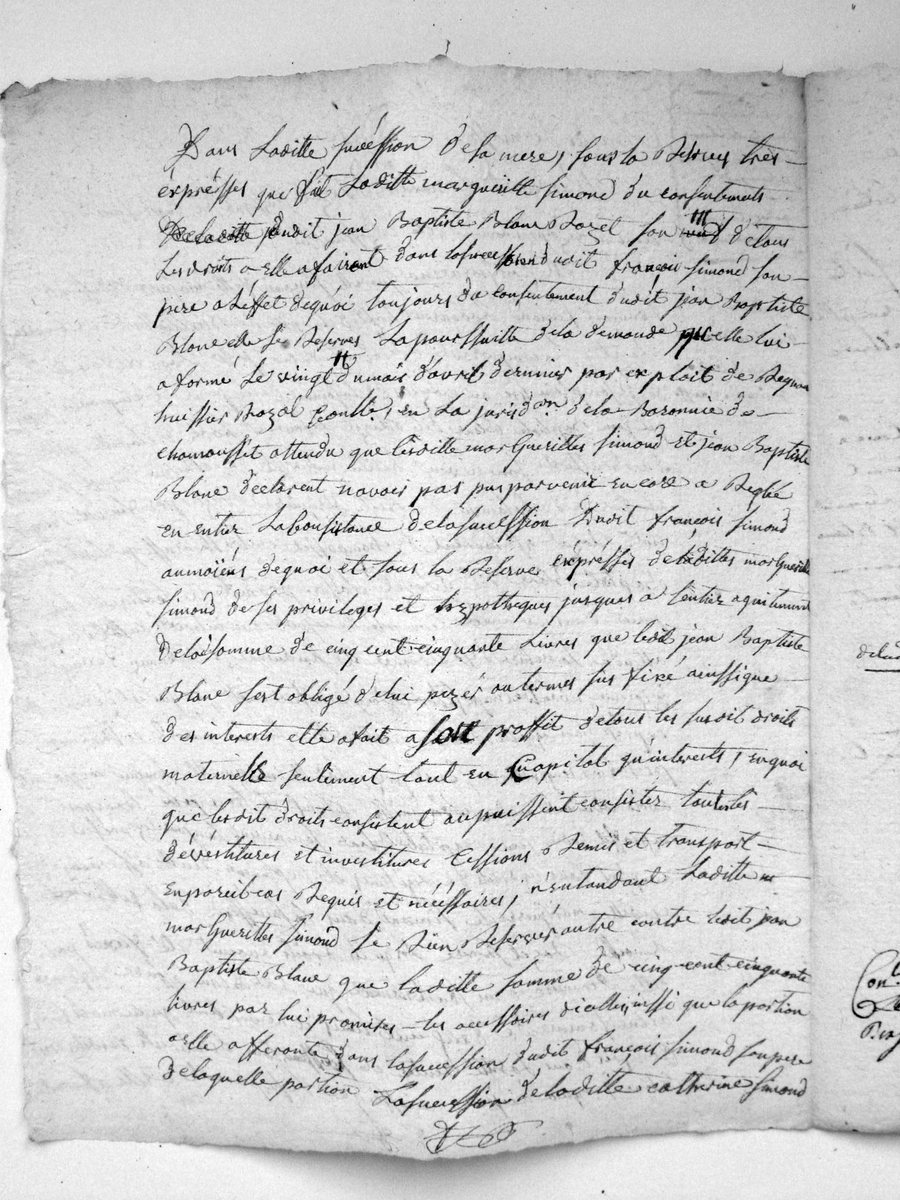 Dans Laditte succéssion de sa mere, sous la Reserves tres
éxprésses que fait Laditte margueritte Simond du consentements
dudit jean Baptiste Blanc Rozet son d'etous
Les droits a elle afairent dans la succéssion dudit françois Simond son
pere a L'éffet dequoi toujours du consentement dudit jean Baptiste
Blanc elle se Reserves La poursuitte de la demande qu'elle lui
a formé Le vingt du mois d'avril dernier par exploit de Requ
huissier Royal en La jurisd.on de la Baronnie de
chamousset attendu que lesditte marGuerittes Simond et jean Baptiste
Blanc déclarent navoir pas pu parvenir encore a Regle
en entier La Consistance de la succéssion dudit françois Simond
aumoiéns dequoi et sous la Reserve éxprésses de laditte marGueritte
Simond de ses privileges et hypotheques jusques a lentier aquitement
de la somme de cinq cent cinquante Livres que ledit jean Baptiste
Blanc sest obligé de lui payér au termes sus fixé ainssique
des interests elle a fait a son proffit de tous les susdit droits
maternelle seulement tant en Capital qu'interests, enquoi
que lesdit droits consistent ou puissent consister toutes les
dévéstitures et investitures Cessions Remis et transport
en pareil cas Requis et nécéssaires, n'entandant Laditte
marGuerittes Simond se Rien Reserver autre contre ledit jean
Baptiste Blanc que laditte somme de cinq cent cinquante
livres par lui promises les accéssoires dicelles, inssi que la portion
a elle afferante dans la succession dudit françois Simond son pere
de laquelle portion La succession de laditte catherine Simond